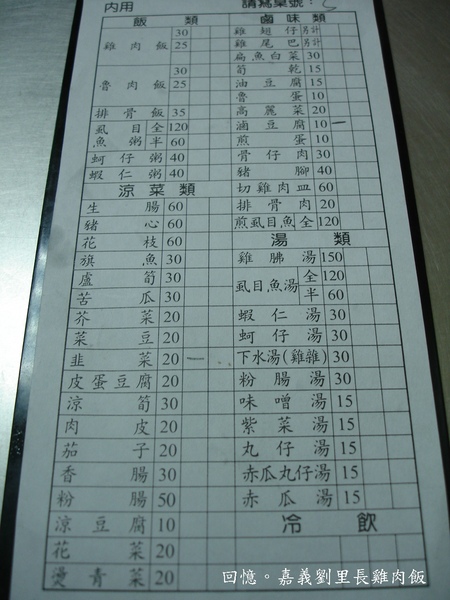 內用
請寫桌號：5
飯 類
雞肉飯 30
25
魯肉飯 30
25
排骨飯 35
虱目魚粥 全 120
半 60
蚵仔粥 40
蝦仁粥 40
涼菜類
生腸 60
豬心 60
花枝 60
旗魚 30
盧筍 30
苦瓜 30
芥菜 20
菜豆 20
韭菜 20
皮蛋豆腐 20
涼筍 30
肉皮 20
茄子 20
香腸 30
粉腸 50
涼豆腐 10
花菜 20
燙青菜 20
鹵味類
雞翅仔 另計
雞尾巴 另計
扁魚白菜 30
筍乾 15
油豆腐 15
魯蛋 10
高麗菜 20
滷豆腐 10
煎蛋 10
骨仔肉 30
豬腳 40
切雞肉皿 60
排骨肉 20
煎虱目魚 全 120
湯 類
雞腿湯 150
虱目魚湯 全 120
半 60
蝦仁湯 30
蚵仔湯 30
下水湯(雞雜) 30
粉腸湯 30
味噌湯 15
紫菜湯 15
丸仔湯 15
赤瓜丸仔湯 15
赤瓜湯 15
冷 飲
回憶。嘉義劉里長雞肉飯